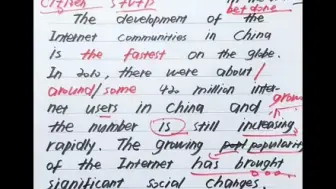 Citizen
be done
The development of the
Internet communities in China
is the fastest on the globe.
In 2010, there were about/
around/some 420 million inter-
net users in China and grow
the number is still increasing
rapidly. The growing popularity
of the Internet has brought
significant social changes.